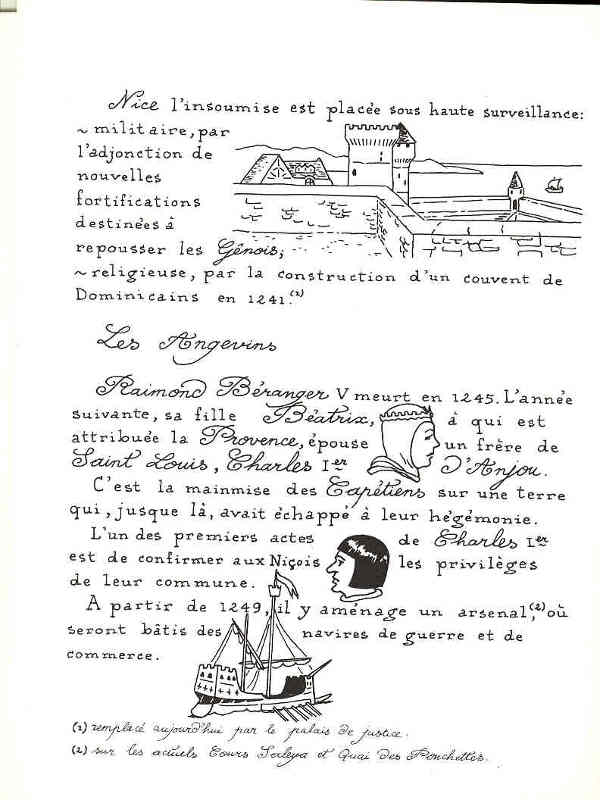 Nice l'insoumise est placée sous haute surveillance:
~ militaire, par
l'adjonction de
nouvelles
fortifications
destinées à
repousser les Gênois;
~ religieuse, par la construction d'un couvent de
Dominicains en 1241.(2)
Les Angevins
Raimond Béranger V meurt en 1245. L'année
suivante, sa fille Béatrix, à qui est
attribuée la Provence, épouse un frère de
Saint Louis, Charles Ier D'Anjou.
C'est la mainmise des Capétiens sur une terre
qui, jusque là, avait échappé à leur hégémonie.
L'un des premiers actes de Charles Ier
est de confirmer aux Niçois les privilèges
de leur commune.
A partir de 1249, il y aménage un arsenal,(2) où
seront bâtis des navires de guerre et de
commerce.
(1) remplacé aujourd'hui par le palais de justice.
(2) sur les actuels Cours Saleya et Quai des Ponchettes.